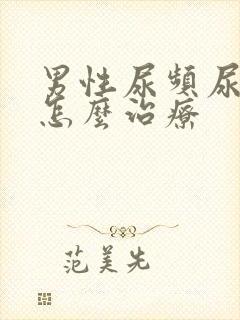 男性尿頻尿
怎麼治療
范美先